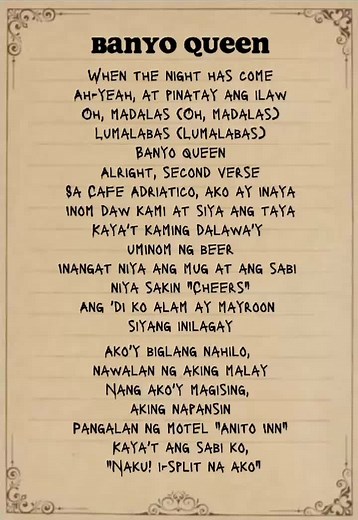 BANYO QUEEN
WHEN THE NIGHT HAS COME
AH-YEAH, AT PINATAY ANG ILAW
OH, MADALAS (OH, MADALAS)
LUMALABAS (LUMALABAS)
BANYO QUEEN
ALRIGHT, SECOND VERSE
SA CAFE ADRIATICO, AKO AY INAYA
INOM DAW KAMI AT SIYA ANG TAYA
KAYA'T KAMING DALAWA'Y
UMINOM NG BEER
INANGAT NIYA ANG MUG AT ANG SABI
NIYA SAKIN "CHEERS"
ANG 'DI KO ALAM AY MAYROON
SIYANG INILAGAY
AKO'Y BIGLANG NAHILO,
NAWALAN NG AKING MALAY
NANG AKO'Y MAGISING,
AKING NAPANSIN
PANGALAN NG MOTEL "ANITO INN"
KAYA'T ANG SABI KO,
"NAKU! I-SPLIT NA AKO"